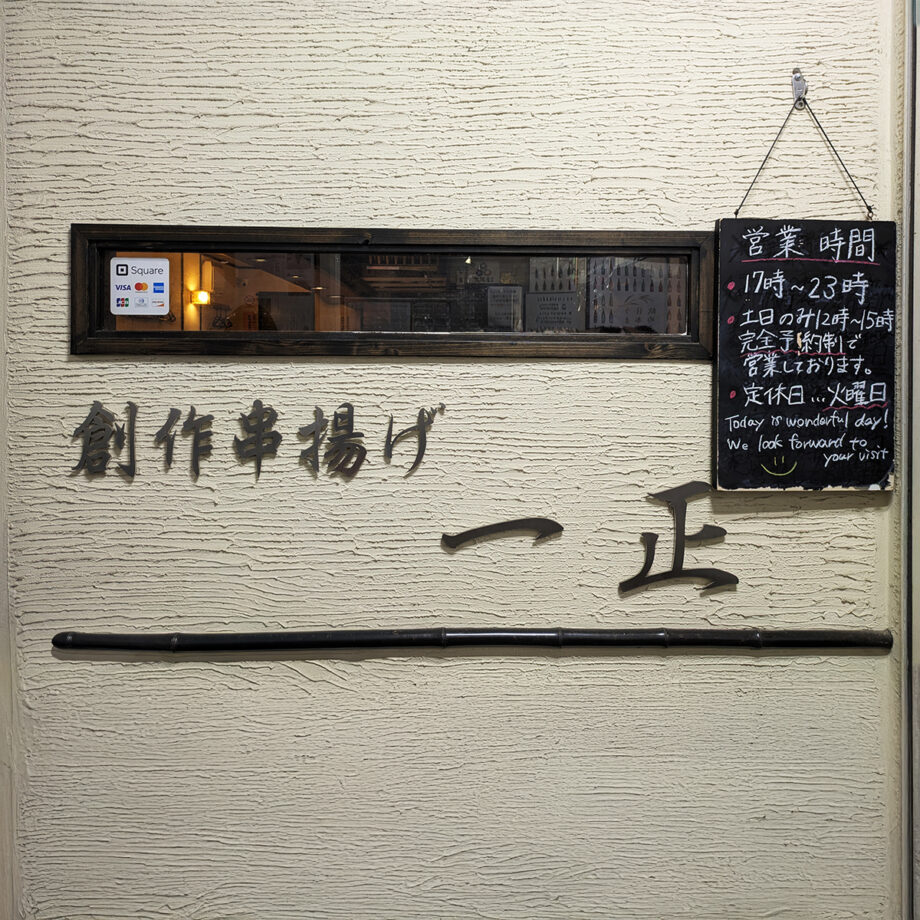 Square
VISA
創作串揚げ
一正
営業時間
・17時～23時
・土日のみ12時～15時
完全予約制で
営業しております。
・定休日…火曜日
Today is wonderful day!
We look forward to
your visit